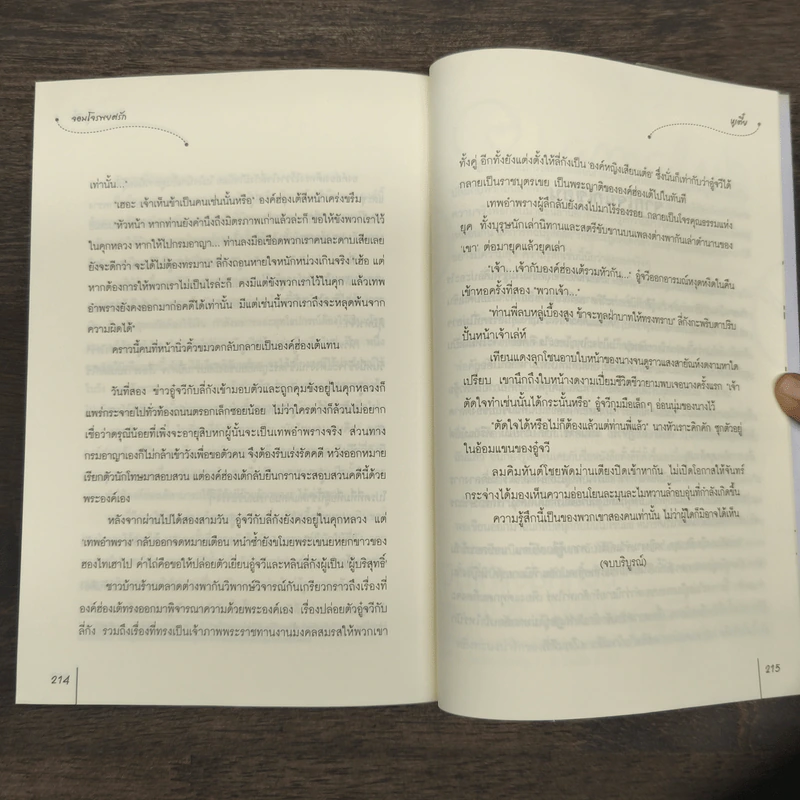 จอมโจรพยศรัก
เท่านั้น..."
"เฮอะ เจ้าเห็นข้าเป็นคนเช่นนั้นหรือ" องค์ฮ่องเต้สีหน้าเคร่งขรึม
"หัวหน้า หากท่านยังคำนึงถึงมิตรภาพเก่าแล้วล่ะก็ ขอให้ขังพวกเราไว้
ในคุกหลวง หากให้ไปกรมอาญา... ท่านลงมือเชือดพวกเราคนละดาบเสียเลย
ยังจะดีกว่า จะได้ไม่ต้องทรมาน" ลี่กังถอนหายใจหนักหน่วงเกินจริง "เฮ้อ แต่
หากต้องการให้พวกเราไม่เป็นไรล่ะก็ คงมีแต่ขังพวกเราไว้ในคุก แล้วเทพ
อำพรางยังคงออกมาก่อคดีได้เท่านั้น มีแต่เช่นนี้พวกเราถึงจะหลุดพ้นจาก
ความผิดได้"
คราวนี้คนที่หน้านิ่วคิ้วขมวดกลับกลายเป็นองค์ฮ่องเต้แทน
วันที่สอง ข่าวอู๋จวีกับลี่กังเข้ามอบตัวและถูกคุมขังอยู่ในคุกหลวงก็
แพร่กระจายไปทั่วท้องถนนตรอกเล็กซอยน้อย ไม่ว่าใครต่างก็ล้วนไม่อยาก
เชื่อว่าดรุณีน้อยที่เพิ่งจะอายุสิบหกผู้นั้นจะเป็นเทพอำพรางจริง ส่วนทาง
กรมอาญาเองก็ไม่กล้าเข้าวังเพื่อขอตัวคน จึงต้องรีบเร่งรัดคดี หวังออกหมาย
เรียกตัวนักโทษมาสอบสวน แต่องค์ฮ่องเต้กลับยืนกรานจะสอบสวนคดีนี้ด้วย
พระองค์เอง
หลังจากผ่านไปได้สองสามวัน อู๋จวีกับลี่กังยังคงอยู่ในคุกหลวง แต่
'เทพอำพราง' กลับออกจดหมายเตือน หนำซ้ำยังขโมยพระเขนยหยกขาวของ
ฮองไทเฮาไป ค่าไถ่คือขอให้ปล่อยตัวเยี่ยนอู๋จวีและหลินลี่กังผู้เป็น 'ผู้บริสุทธิ์'
ชาวบ้านร้านตลาดต่างพากันวิพากษ์วิจารณ์กันเกรียวกราวถึงเรื่องที่
องค์ฮ่องเต้ทรงออกมาพิจารณาความด้วยพระองค์เอง เรื่องปล่อยตัวอู๋จวีกับ
ลี่กัง รวมถึงเรื่องที่ทรงเป็นเจ้าภาพพระราชทานงานมงคลสมรสให้พวกเขา
214
ทั้งคู่ อีกทั้งยังแต่งตั้งให้ลี่กังเป็น 'องค์หญิงเสียนเต๋อ' ซึ่งนั่นก็เท่ากับว่าอู๋จวีได้
กลายเป็นราชบุตรเขย เป็นพระญาติขององค์ฮ่องเต้ไปในทันที
เทพอำพรางผู้ลึกลับยังคงไปมาไร้ร่องรอย กลายเป็นโจรคุณธรรมแห่ง
ยุค ทั้งบุรุษนักเล่านิทานและสตรีขับขานบนเพลงต่างพากันเล่าตำนานของ
'เขา' ต่อมายุคแล้วยุคเล่า
"เจ้า...เจ้ากับองค์ฮ่องเต้รวมหัวกัน..." อู๋จวีออกอารมณ์หงุดหงิดในคืน
เข้าหอครั้งที่สอง "พวกเจ้า..."
"ท่านพี่ลบหลู่เบื้องสูง ข้าจะทูลฝ่าบาทให้ทรงทราบ" ลี่กังกะพริบตาปริบ
ปั้นหน้าเจ้าเล่ห์
เทียนแดงลุกโชนอาบใบหน้าของนางจนดูราวแสงสายัณห์งดงามหาใด
เปรียบ เขานึกถึงใบหน้างดงามเปี่ยมชีวิตชีวายามพบเจอนางครั้งแรก "เจ้า
ตัดใจทำเช่นนั้นได้กระนั้นหรือ" อู๋จวีกุมมือเล็กๆ อ่อนนุ่มของนางไว้
"ตัดใจได้หรือไม่ก็ต้องแล้วแต่ท่านพี่แล้ว" นางหัวเราะคิกคัก ซุกตัวอยู่
ในอ้อมแขนของอู๋จวี
ลมคิมหันต์โชยพัดม่านเตียงปิดเข้าหากัน ไม่เปิดโอกาสให้จันทร์
กระจ่างได้มองเห็นความอ่อนโยนละมุนละไมหวานล้ำอบอุ่นที่กำลังเกิดขึ้น
ความรู้สึกนี้เป็นของพวกเขาสองคนเท่านั้น ไม่ว่าผู้ใดก็มิอาจได้เห็น
(จบบริบูรณ์)
215